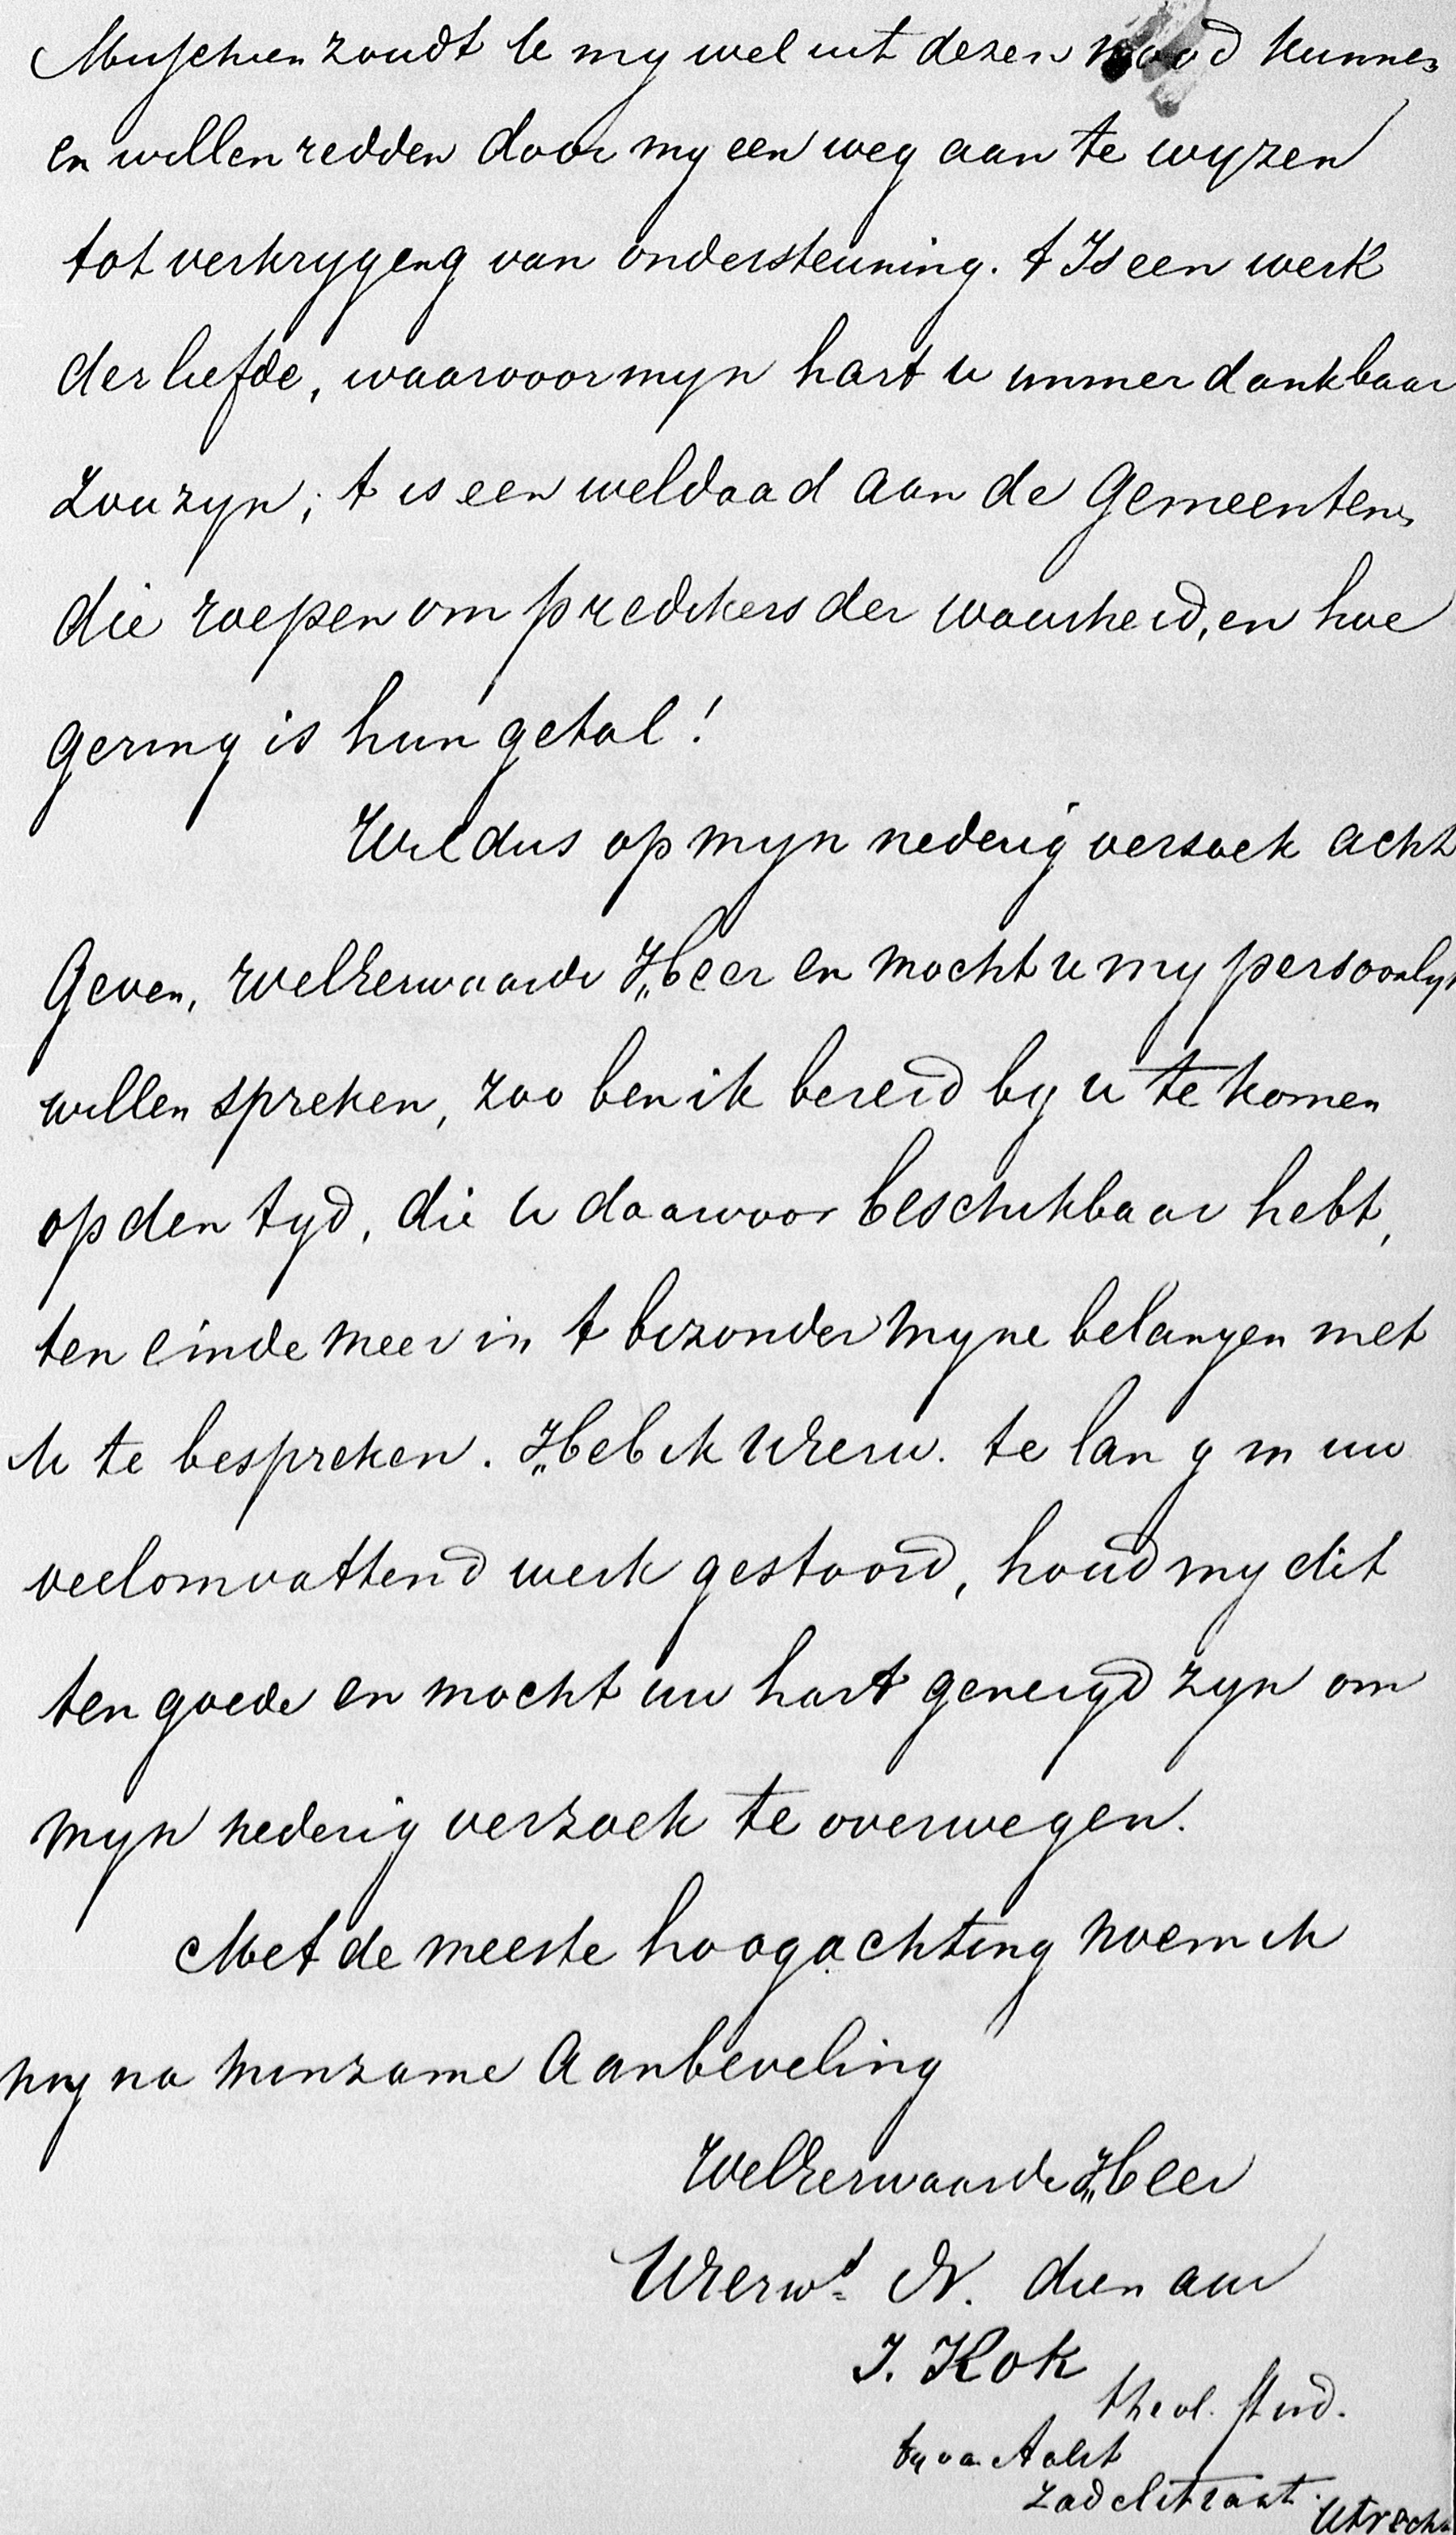 Misschien zoudt U my wel uit dezen nood kunnen
en willen redden door my een weg aan te wyzen
tot verkryging van ondersteuning. t Is een werk
der liefde, waarvoor myn hart u immer dankbaar
zou zyn; t is een weldaad aan de Gemeenten,
die roepen om predikers der waarheid, en hoe
gering is hun getal!
Wil dus op myn nederig versoek acht
Geven, WelEerwaarde Heer en mocht u my persoonlyk
willen spreken, zoo ben ik bereid by u te komen
op den tyd, die u daarvoor beschikbaar hebt,
ten einde meer in t bizonder myne belangen met
U te bespreken. Heb ik UEerw. te lang in uw
veelomvattend werk gestoord, houd my dit
ten goede en mocht uw hart geneigd zyn om
myn nederig verzoek te overwegen.
Met de meeste hoogachting noem ik
my na minzame Aanbeveling
WelEerwaarde Heer
UEerwd. N. dienaar
J. Kok
theol. stud.
by van Aalst
Zadelstraat. Utrecht